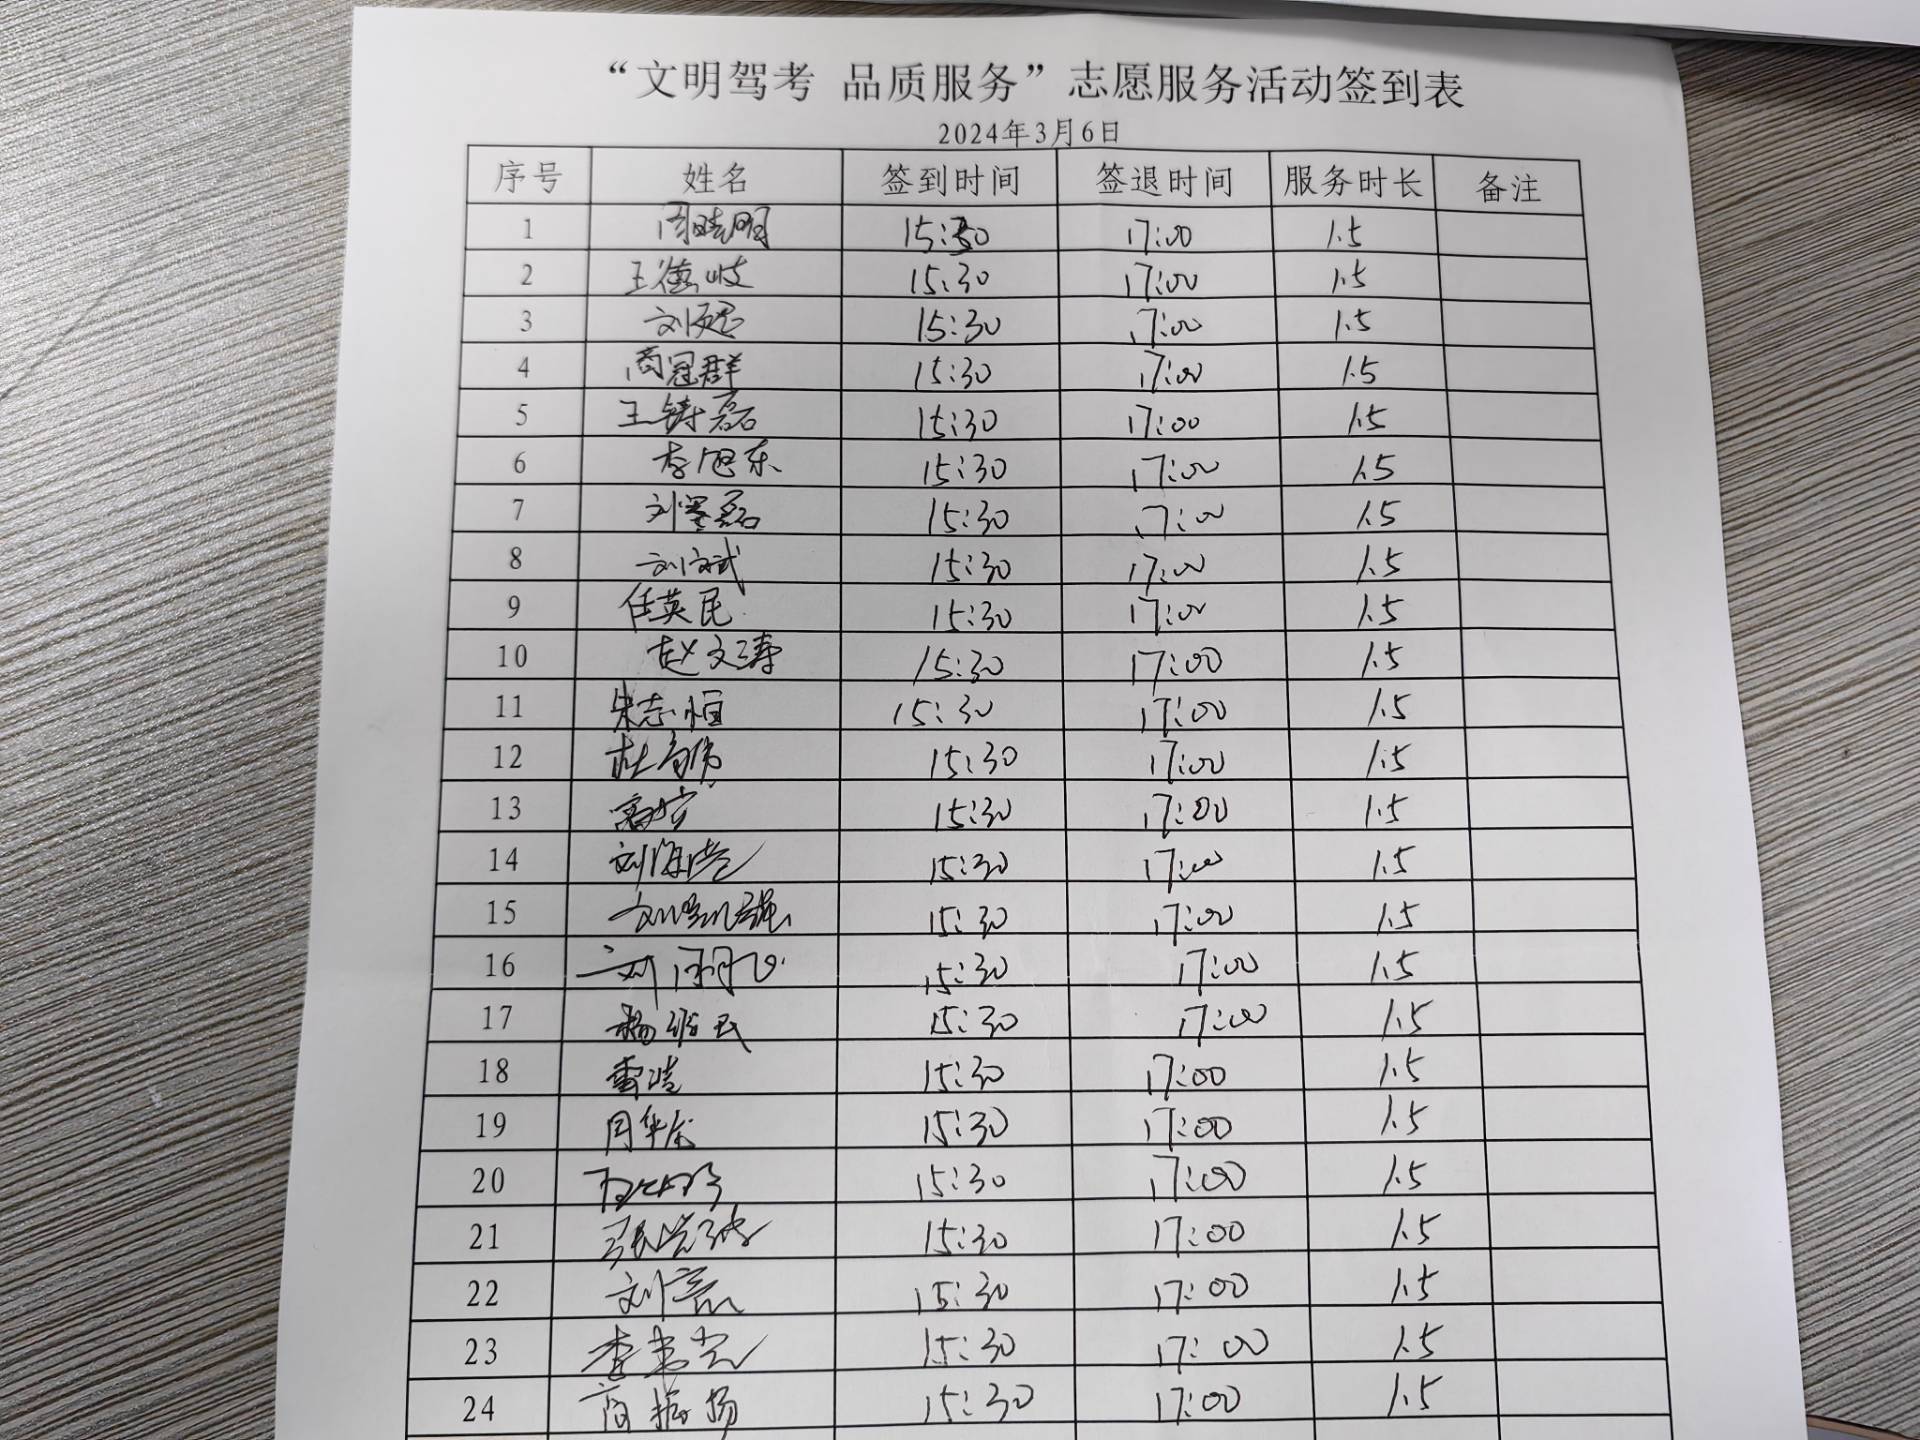 “文明驾考 品质服务”志愿服务活动签到表
2024年3月6日
序号 姓名 签到时间 签退时间 服务时长 备注
1 周晓明 15:30 17:00 1.5
2 王德岐 15:30 17:00 1.5
3 刘 15:30 17:00 1.5
4 商冠群 15:30 17:00 1.5
5 王铸磊 15:30 17:00 1.5
6 李旭东 15:30 17:00 1.5
7 刘 磊 15:30 17:00 1.5
8 刘文斌 15:30 17:00 1.5
9 任英民 15:30 17:00 1.5
10 赵文涛 15:30 17:00 1.5
11 朱志恒 15:30 17:00 1.5
12 杜 伟 15:30 17:00 1.5
13 15:30 17:00 1.5
14 刘海 15:30 17:00 1.5
15 刘凯强 15:30 17:00 1.5
16 刘 15:30 17:00 1.5
17 杨维民 15:30 17:00 1.5
18 雷 15:30 17:00 1.5
19 周华 15:30 17:00 1.5
20 15:30 17:00 1.5
21 张 15:30 17:00 1.5
22 刘亮 15:30 17:00 1.5
23 李 15:30 17:00 1.5
24 商振扬 15:30 17:00 1.5